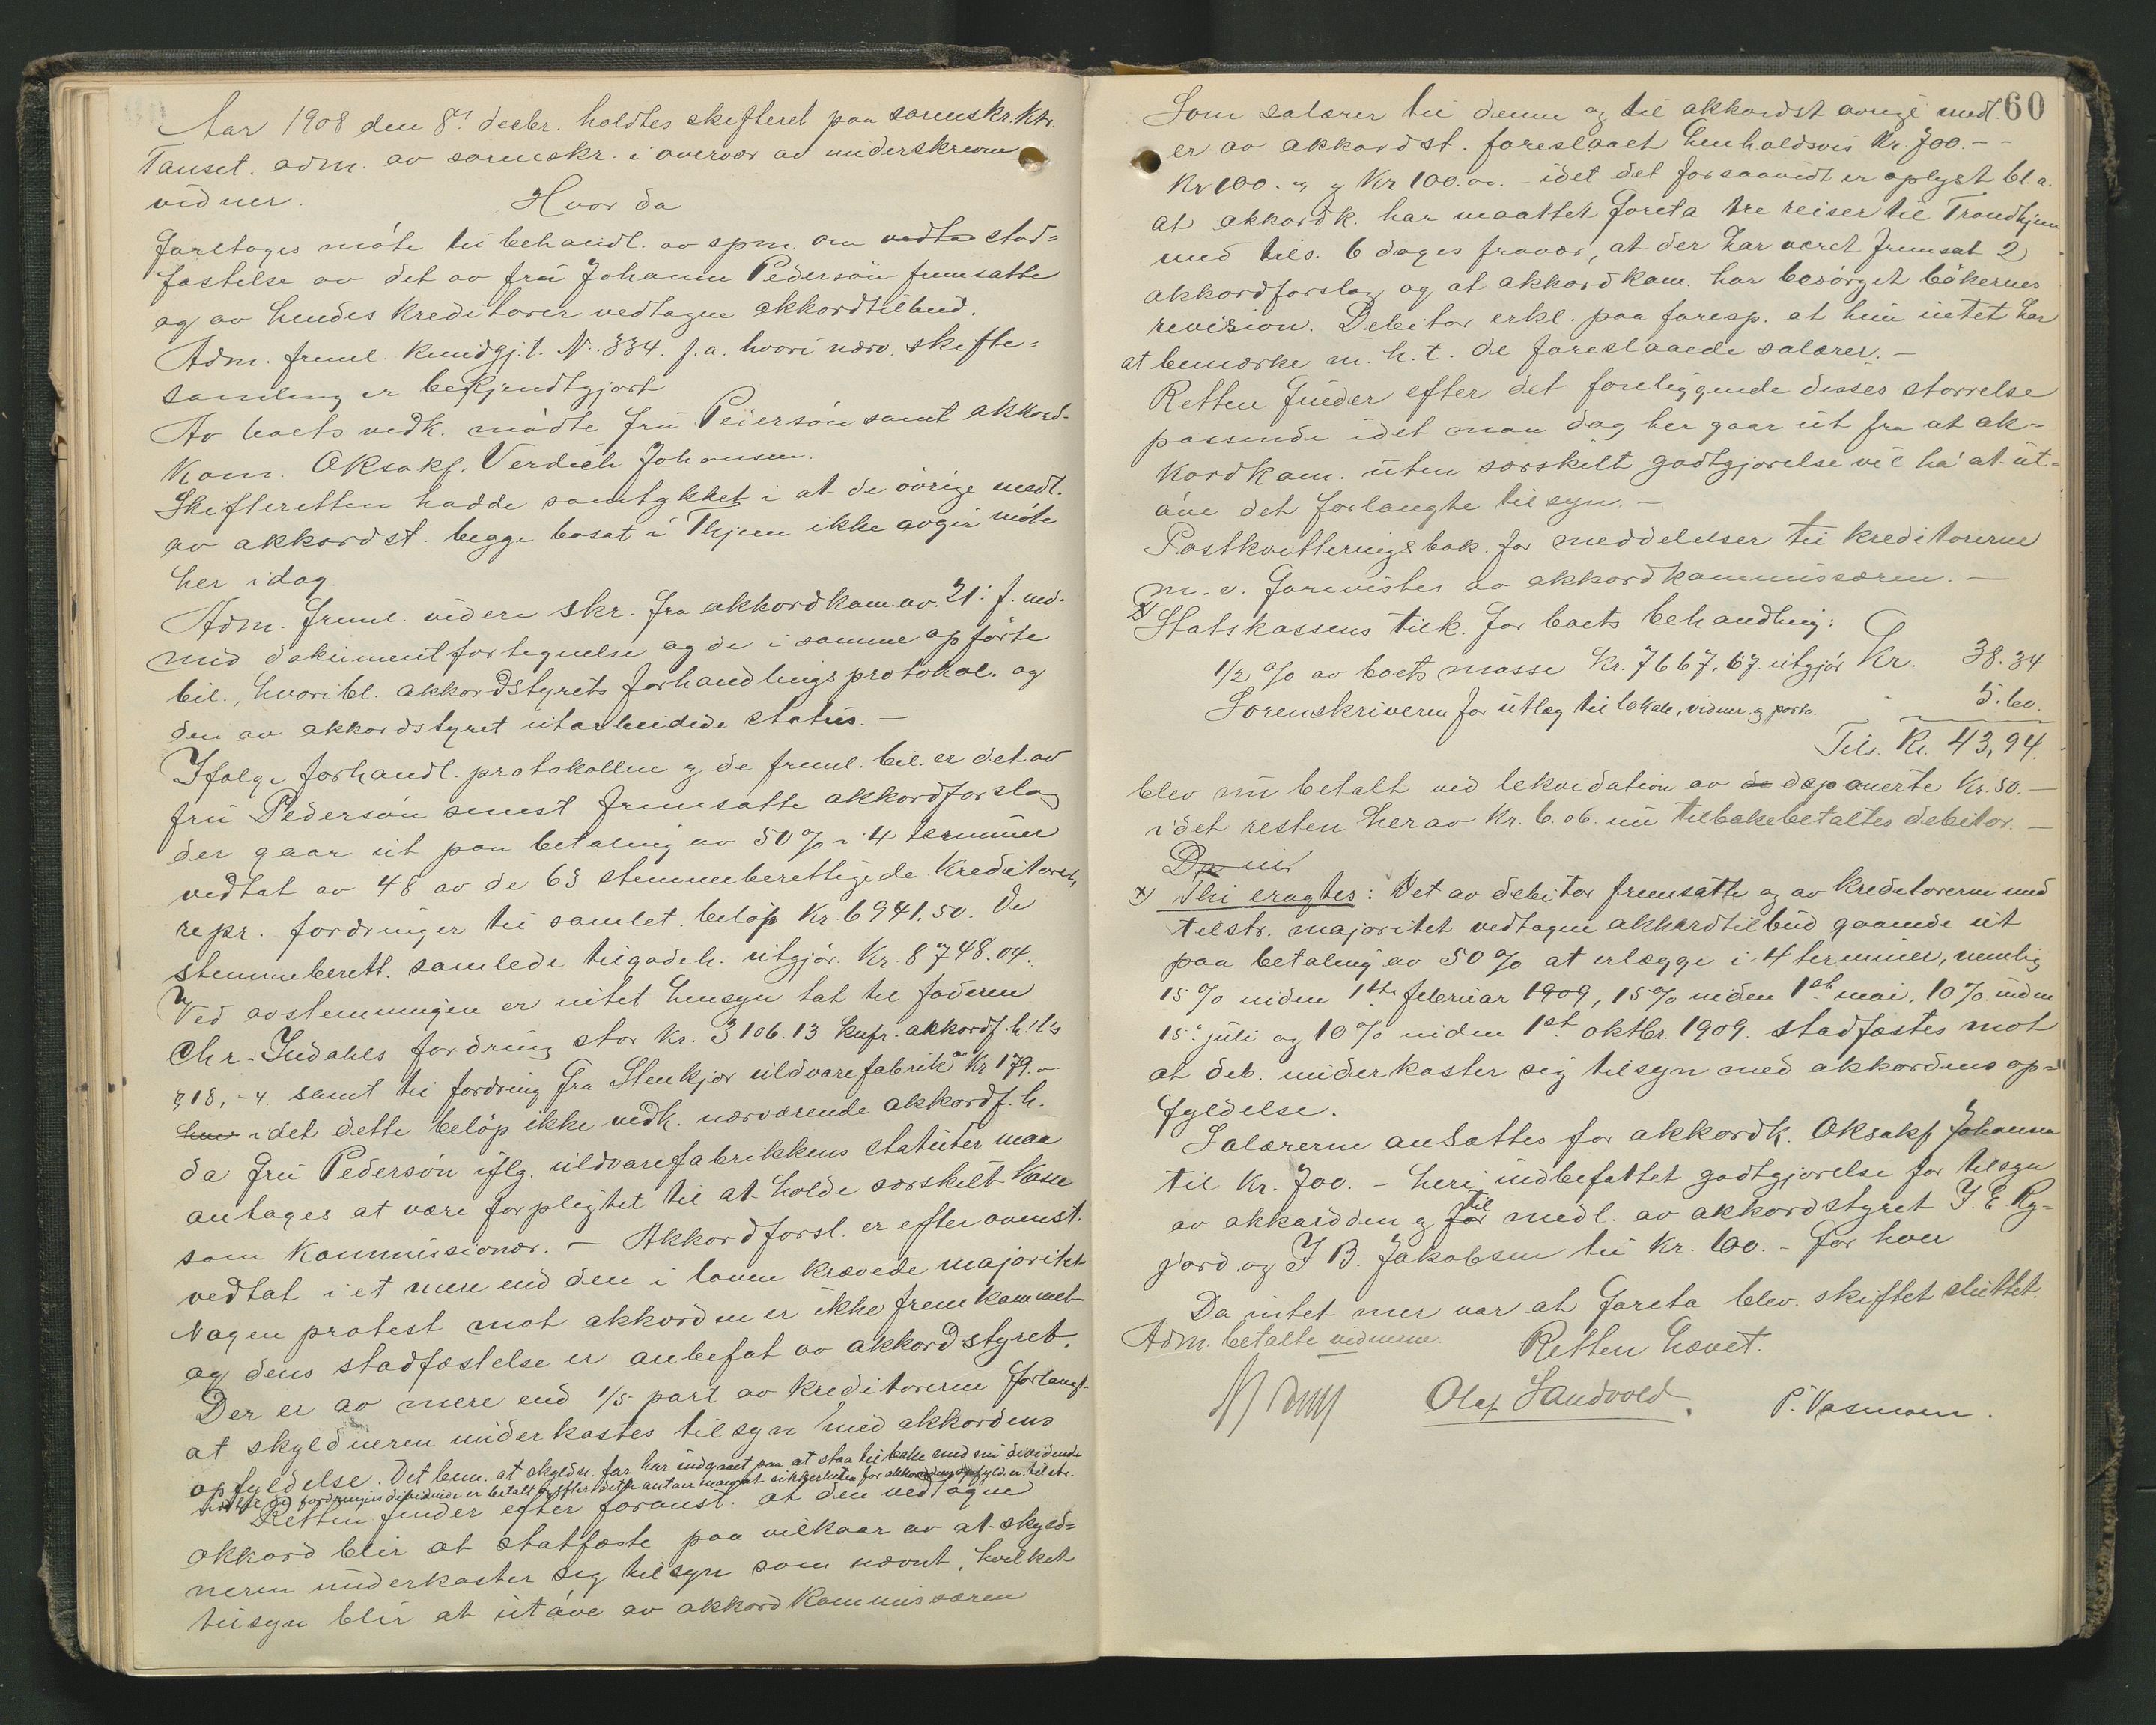 Aar 1908 den 8de decbr. holdtes skifteret paa sorenskr. ktr.
Tanset. adm. av sorenskr. i overvær av underskrevne
vidner. Hvor da
foretoges møte til behandl. av spm. om vedta stad=
fæstelse av det av fru Johanne Pedersøn fremsatte
og av hendes kreditorer vedtagne akkordtilbud.
Adm. freml. kundgj. t. N. 334. f. a. hvori nærv. skifte=
samling er bekjendtgjort
Av boets vedk. mødte fru Pedersøn samt akkord-
kom. Oksakf. Verdich Johansen.
Skifteretten hadde samtykket i at de øvrige medl.
av akkordst. begge bosat i Thjem ikke avgir møte
her idag.
Adm. freml. videre skr. fra akkordkom. av 21. f. md.
med dokumentfortegnelse og de i samme opførte
bil., hvoribl. akkordstyrets forhandlingsprotokol. og
den av akkordstyret utarbeidede status. –
Ifølge forhandl. protokollen og de freml. bil. er det av
fru Pedersøn senest fremsatte akkordforslag
der gaar ut paa betaling av 50 % i 4 terminer
vedtat av 48 av de 63 stemmeberettigede kreditorer,
repr. fordringer til samlet beløp Kr. 6941.50. De
stemmeberett. samlede tilgodeh. utgjør Kr. 8748.04.
Ved avstemningen er intet hensyn tat til faderen
Chr. Indahls fordring stor Kr. 3106.13 knfr. akkordf. h. l's
§ 18, - 4. samt til fordring fra Stenkjær uldvarefabrik Kr 179.-
hvor idet dette beløp ikke vedk. nærværende akkordf. h.
da fru Pedersøn iflg. uldvarefabrikkens statuter maa
antages at være forpligtet til at holde særskilt kasse
som kommisionær. – Akkordforsl. er efter ovenst.
vedtat i et mere end den i loven krævede majoritet
Nogen protest mot akkorden er ikke fremkommet
og dens stadfæstelse er anbefat av akkordstyret.
Der er av mere end 1/5 part av kreditorerne forlangt
at skyldneren underkastes tilsyn med akkordens
opfyldelse. Det bem. at skyldn. far har indgaaet paa at staa tilbake med sin dividende
indtil de fordringers dividende er betalt og efter dette antar man at sikkerheten for akkordens opfyld. er tilstr.
Retten finder efter foranst. at den vedtagne
akkord blir at statfæste paa vilkaar av at skyld=
neren underkaster sig tilsyn som nævnt, hvilket
tilsyn blir at utøve av akkordkommissæren
60
Som salærer til denne og til akkordst øvrige medl.
er av akkordst. foreslaaet henholdsvis Kr. 700.- -
Kr 100. - og Kr 100.00. - idet det forsaavidt er oplyst bl. a.
at akkordk. har maattet foreta tre reiser til Trondhjem
med tils. 6 dages fravær, at der har været fremsat 2
akkordforslag og at akkordkom. har besørget bøkernes
revision. Debitor erkl. paa foresp. at hun intet har
at bemærke m. h. t. de foreslaaede salærer. –
Retten finder efter det foreliggende disses størrelse
passende idet man dog her gaar ut fra at ak-
kordkom. uten særskilt godtgjørelse vil ha at ut-
øve det forlangte tilsyn. –
Postkvitteringsbok. for meddelelser til kreditorerne
m. v. forevistes av akkordkommissæren. –
x) Statskassens tilk. for boets behandling:
1/2 % av boets masse Kr. 7667.67. utgjør Kr. 38.34
Sorenskriveren for utlæg til lokale, vidner og porto. - 5.60.
Tils. Kr. 43,94.
blev nu betalt ved likvidation av de deponerte Kr. 50. –
idet resten herav Kr. 6.06. nu tilbakebetaltes debitor. –
Da nu
x) Thi eragtes: Det av debitor fremsatte og av kreditorerne med
tilstr. majoritet vedtagne akkordtilbud gaaende ut
paa betaling av 50 % at erlægge i 4 terminer, nemlig
15 % inden 1ste februar 1909, 15 % inden 1st mai, 10 % inden
15. juli og 10 % inden 1st oktbr. 1909. stadfæstes mot
at deb. underkaster sig tilsyn med akkordens op=
fyldelse.
Salærerne ansættes for akkordk. Oksakf Johansen
til Kr. 700. - heri indbefattet godtgjørelse for tilsyn
av akkorden og for til medl. av akkordstyret I. E. Ry=
gjord og I B. Jakobsen til Kr. 100. - for hver
Da intet mer var at foreta blev skiftet sluttet.
Adm. betalte vidnerne. Retten hævet.
Olaf Sandvold. P. Vasmoen.